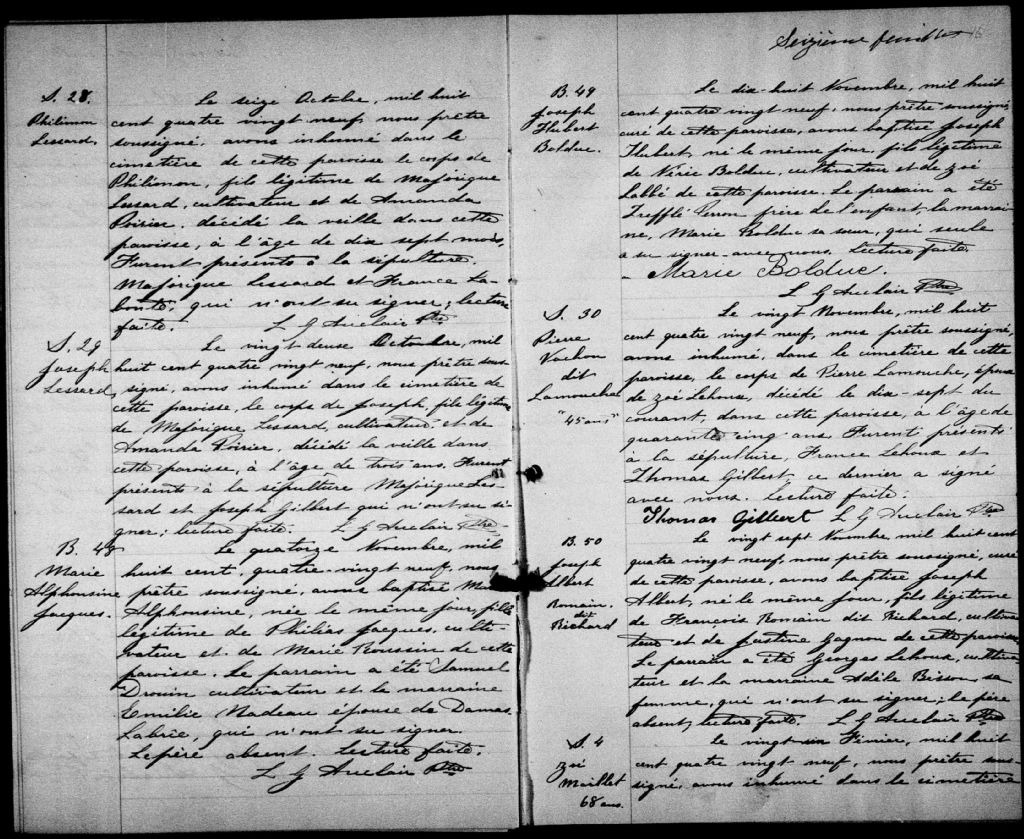 S. 28.
Philimon
Lessard.
Le seize Octobre, mil huit
cent quatre vingt neuf, nous prêtre
soussigné, avons inhumé dans le
cimetière de cette paroisse le corps de
Philimon, fils légitime de Majorique
Lessard, cultivateur et de Amanda
Poirier, décédé la veille dans cette
paroisse, à l'âge de dix sept mois.
Furent présents à la sépulture.
Majorique Lessard et France La-
bonté, qui n'ont su signer; lecture
faite. L G Auclair Ptre
S. 29
Joseph
Lessard
Le vingt deuse Octobre, mil
huit cent quatre vingt neuf, nous prêtre sous-
signé, avons inhumé dans le cimetière de
cette paroisse, le corps de Joseph, fils légitime
de Majorique Lessard, cultivateur et de
Amanda Poirier, décédé la veille dans
cette paroisse, à l'âge de trois ans. Furent
présents à la sépulture Majorique Les-
sard et Joseph Gilbert qui n'ont su si-
gner; lecture faite. L G Auclair Ptre
B. 48
Marie
Alphonsine
Jacques.
Le quatorze Novembre, mil
huit cent, quatre-vingt neuf, nous
prêtre soussigné, avons baptisé Marie
Alphonsine, née le même jour, fille
légitime de Philias Jacques, culti-
vateur et de Marie Roussin de cette
paroisse. Le parrain a été Samuel
Drouin cultivateur et le marraine
Emilie Nadeau épouse de Damas
Labrie, qui n'ont su signer.
Le père absent. Lecture faite.
L G Auclair Ptre
Seizième feuillet 16
B. 49
Joseph
Hubert
Bolduc.
Le dix-huit Novembre, mil huit
cent quatre vingt neuf, nous prêtre soussigné,
curé de cette paroisse, avons baptisé Joseph
Hubert, né le même jour, fils légitime
de Bolduc, cultivateur et de Zoé
Labbé de cette paroisse. Le parrain a été
Trefflé Perron frère de l'enfant, la marrai-
ne, Marie Bolduc sa sœur, qui seule
a su signer avec nous. Lecture faite
- Marie Bolduc.
L G Auclair Ptre
S. 30
Pierre
Vachon
dit
Lamouche
"45 ans"
Le vingt Novembre, mil huit
cent quatre vingt neuf, nous prêtre soussigné,
avons inhumé, dans le cimetière de cette
paroisse, le corps de Pierre Lamouche, époux
de Zoé Lehoux, décédé le dix-sept du
courant, dans cette paroisse, à l'âge de
quarante cinq ans. Furent présents
à la sépulture, France Lehoux et
Thomas Gilbert; ce dernier a signé
avec nous. Lecture faite.
Thomas Gilbert L G Auclair Ptre
B. 50
Joseph
Albert
Romain
dit
Richard
Le vingt sept Novembre, mil huit cent
quatre vingt neuf, nous prêtre soussigné, curé
de cette paroisse, avons baptisé Joseph
Albert, né le même jour, fils légitime
de François Romain dit Richard, cultiva-
teur et de Justine Gagnon de cette paroisse
Le parrain a été Georges Lehoux, cultiva-
teur et la marraine Adèle Bisson sa
femme, qui n'ont su signer; le père
absent, lecture faite. L G Auclair Ptre
S. 4
Zoé
Maillet
68 ans.
Le vingt six Février, mil huit
cent quatre vingt neuf, nous prêtre sous-
signé, avons inhumé dans le cimetière